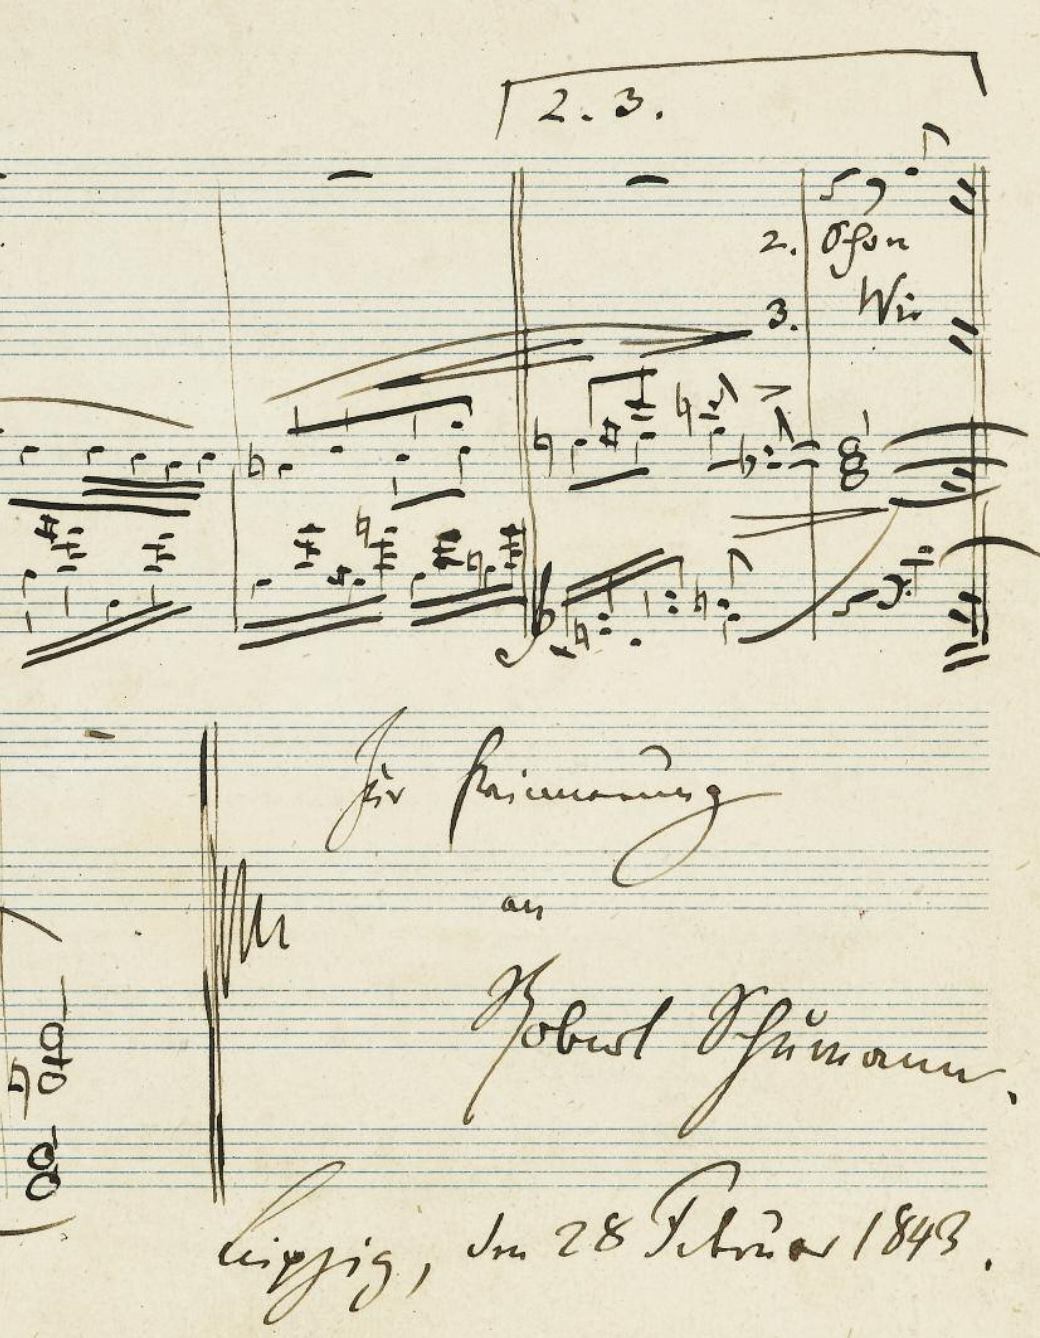 2. 3.
2. Schon
3. Wie
Zur Erinnerung
an
Robert Schumann.
Leipzig, den 28 Februar 1843.